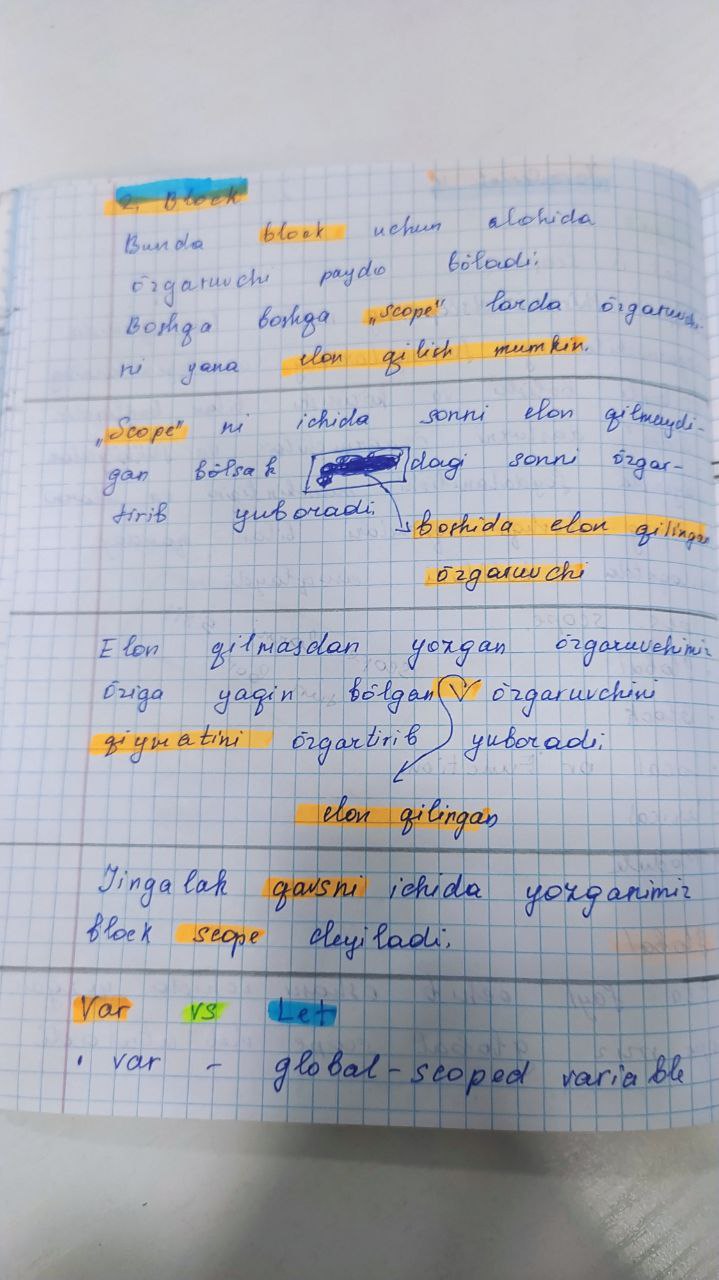 2. Block
Bunda block uchun alohida
özgaruvchi paydo böladi.
Boshqa boshqa „scope" larda özgaruvchi
ni yana elon qilish mumkin.
„Scope" ni ichida sonni elon qilmaydi-
gan bölsak dagi sonni özgar-
tirib yuboradi.
boshida elon qilingan
özgaruvchi
Elon qilmasdan yozgan özgaruvchimiz
öziga yaqin bölgan V özgaruvchini
qiymatini özgartirib yuboradi.
elon qilingan
Jingalak qavsni ichida yozganimiz
block scope deyiladi.
Var vs Let
• var - global-scoped variable